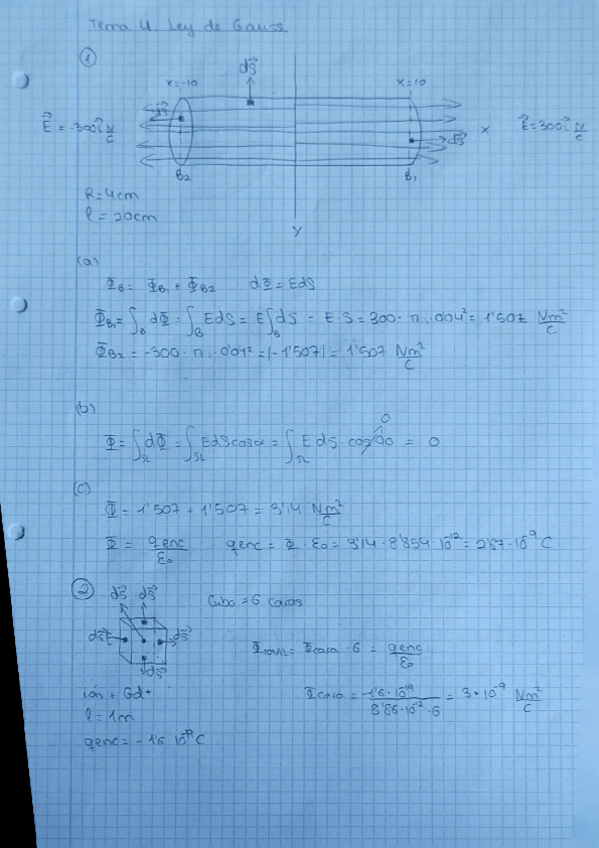 Tema 4. Ley de Gauss
①
dS⃗
x=-10
x=10
dS⃗
E⃗ = -300i⃗ N/C
dS⃗
x
E⃗=300i⃗ N/C
B₂
B₁
R=4cm
l = 20cm
Y
(a)
Φ_B = Φ_B₁ + Φ_B₂ dΦ = EdS
Φ_B₁ = ∫_B dΦ = ∫_B EdS = E∫_B dS = E·S = 300·π·0'04² = 1'507 Nm²/C
Φ_B₂ = -300·π·0'04² = |-1'507| = 1'507 Nm²/C
(b)
0
Φ = ∫_SL dΦ = ∫_SL EdS cosα = ∫_SL E dS · cos 90 = 0
(c)
Φ = 1'507 + 1'507 = 3'14 Nm²/C
Φ = qenc/ε₀ qenc = Φ · ε₀ = 3'14 · 8'854·10⁻¹² = 2'87·10⁻⁹ C
②
dS⃗ dS⃗
Cubo = 6 caras
dS⃗ dS⃗
dS⃗
Φ_TOTAL = Φ_cara · 6 = qenc/ε₀
ión + Gd+
l = 1m
Φ_cara = -1'6·10⁻¹⁹/8'86·10⁻¹²·6 = 3·10⁻⁹ Nm²/C
qenc = -1'6 10⁻¹⁹ C